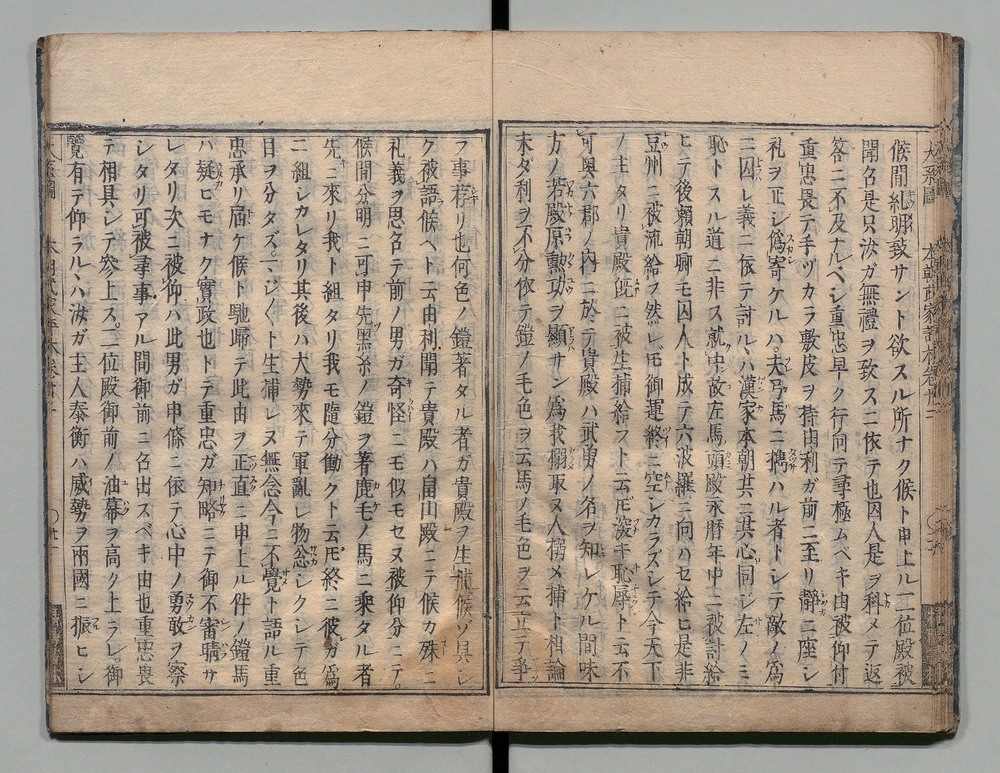 候間糺明致サント欲スル所ナク候ト申上ル二位殿被
聞名是只汝ガ無禮ヲ致スニ依テ也囚人是ヲ科メテ返
答ニ不及ナルベシ重忠早ク行向テ尋極ムベキ由被仰付
重忠畏テ手ヅカラ敷皮ヲ持由利ガ前ニ至リ靜ニ座シ
礼ヲ正シ寄ケルハ夫弓馬ニ携ハル者トシテ敵ノ爲
ニ囚レ義ニ依テ討ルヽハ漢家本朝共ニ其心同ジ左ノミ
恥トスル道ニ非ス就中故左馬頭殿永暦年中ニ被討給
ヒテ後頼朝卿モ囚人ト成テ六波羅ニ向ハセ給ヒ是非
豆州ニ被流給フ然レ𪜈御運終ニ空シカラズシテ今天下
ノ主タリ貴殿既ニ被生捕給フト云𪜈深キ恥辱ト云不
可奥六郡ノ内ニ於テ貴殿ハ武勇ノ名ヲ知レケル間味
方ノ若殿原勲功ヲ顯サン爲我搦取ヌ人搦メ捕ト相論
未ダ利ヲ不分依テ鎧ノ毛色ヲ云馬ノ毛色ヲ云立テ爭
フ事存リ也何色ノ鎧著タル者ガ貴殿ヲ生捕候ゾ具シ
ク被語候ヘト云由利聞テ貴殿ハ畠山殿ニテ候カ殊ニ
礼義ヲ思名テ前ノ男ガ奇怪ニモ似モセヌ被仰分ニテ。
候間分明ニ可申先黒糸ノ鎧ヲ著鹿毛ノ馬ニ乗タル者
先ニ來リ我ト組タリ我モ隨分働クト云𪜈終ニ彼ガ爲
ニ組シカレタリ其後ハ大勢來テ軍亂レ物忩シクシテ色
目ヲ分タズ。ト生捕レヌ無念今ニ不覺ト語ル重
忠承リ届ケ候ト馳歸テ此由ヲ正直ニ申上ル件ノ鎧馬
ハ疑ヒモナク實政也トテ重忠ガ知略ニテ御不審晴サ
レタリ次ニ被仰ハ此男ガ申條ニ依テ心中ノ勇敢ヲ察
シタリ可被尋事アル間御前ニ名出スベキ由也重忠畏
テ相具シテ參上ス。二位殿御前ノ油幕ヲ高ク上ラレ。御
覽有テ仰ラルヽハ汝ガ主人泰衡ハ威勢ヲ兩國ニ振ヒシ